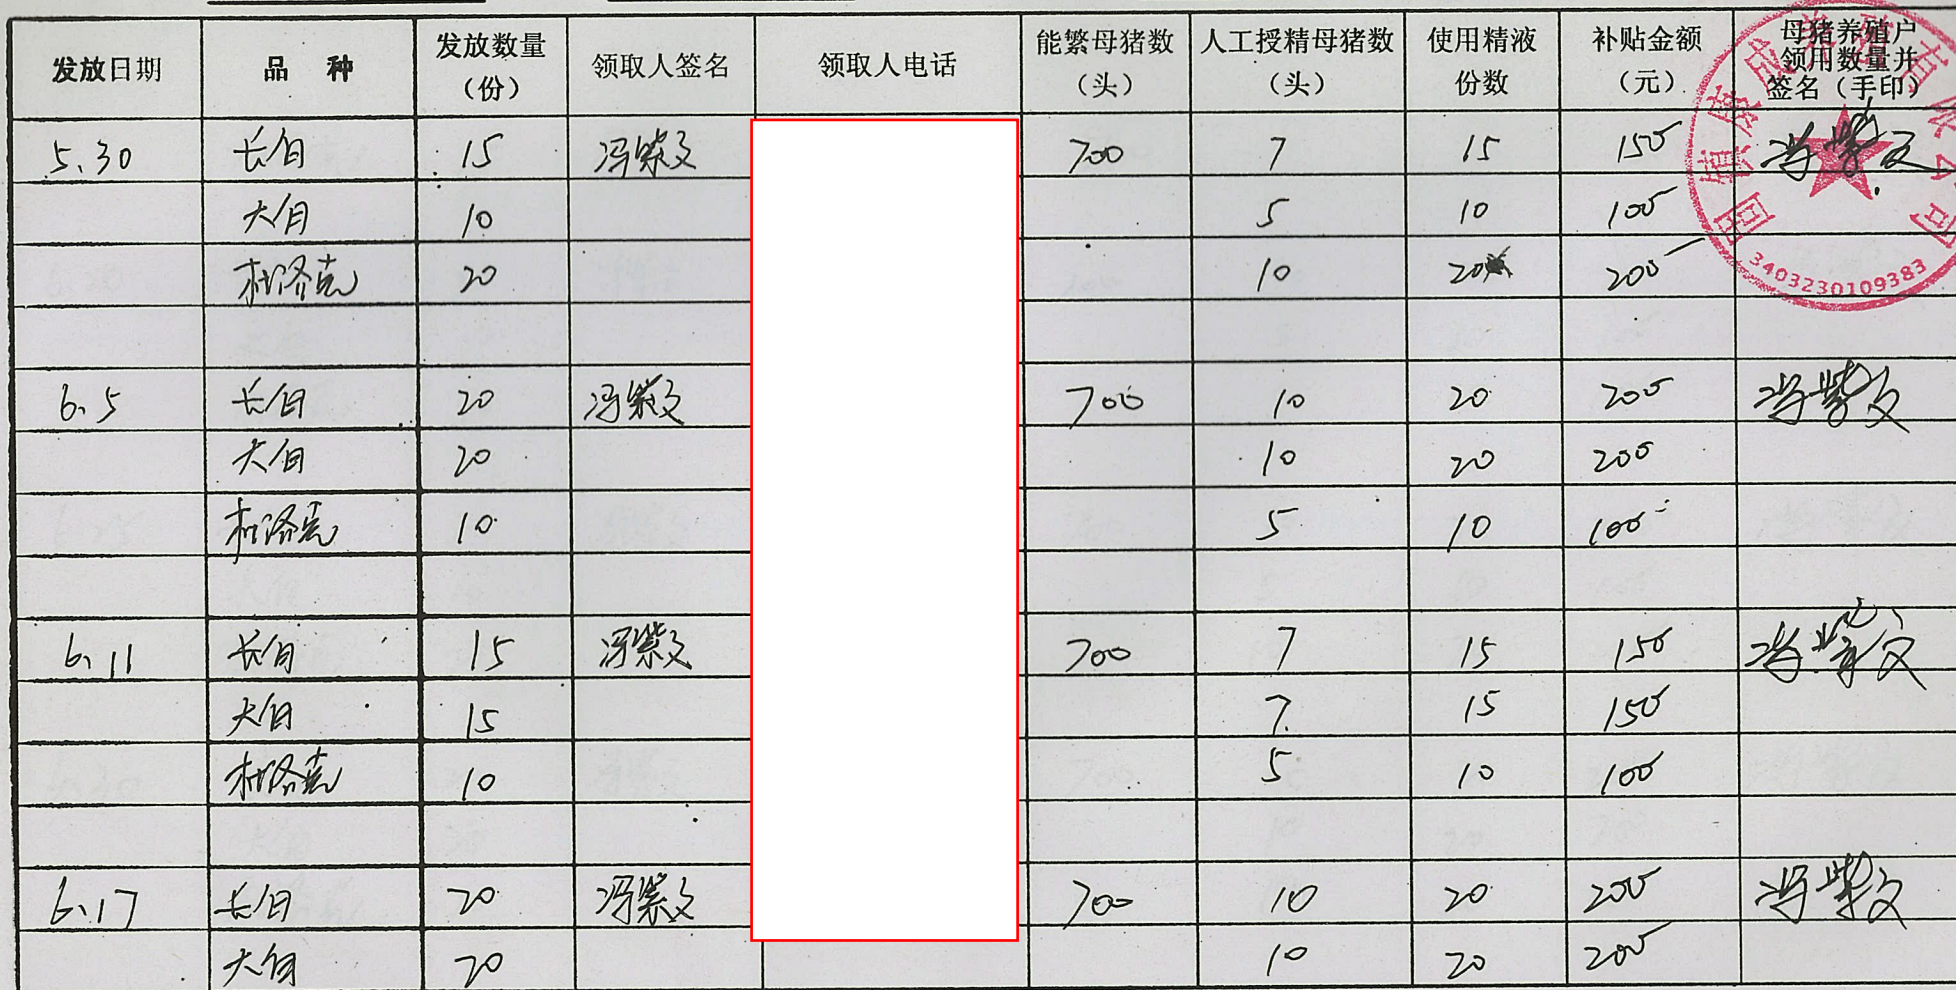 发放日期 品 种 发放数量(份) 领取人签名 领取人电话 能繁母猪数(头) 人工授精母猪数(头) 使用精液份数 补贴金额(元) 母猪养殖户领用数量并签名(手印)
5.30 长白 15 冯紫文 700 7 15 150 冯紫文
大白 10 5 10 100
杜洛克 20 10 20 200
6.5 长白 20 冯紫文 700 10 20 200 冯紫文
大白 20 10 20 200
杜洛克 10 5 10 100
6.11 长白 15 冯紫文 700 7 15 150 冯紫文
大白 15 7 15 150
杜洛克 10 5 10 100
6.17 长白 20 冯紫文 700 10 20 200 冯紫文
大白 20 10 20 200
3403230109383